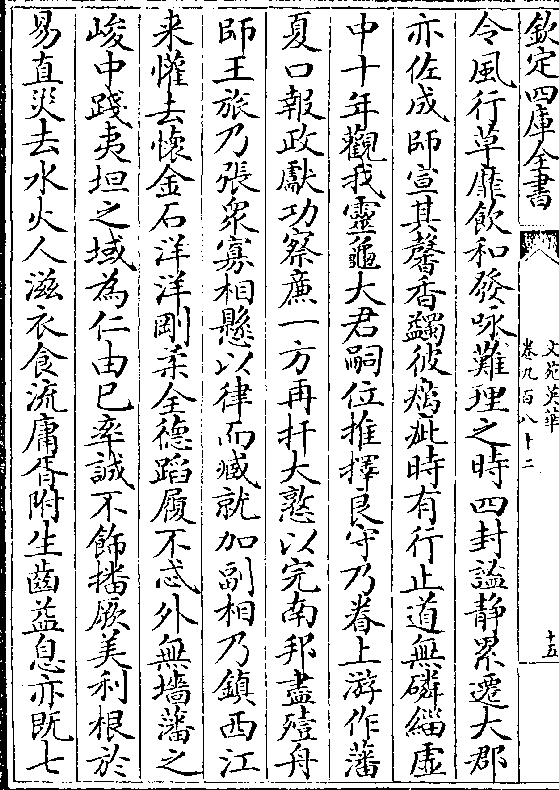 欽定四庫全書
文苑英華
卷九百八十二
十五
令風行草靡飲和發咏難理之時四封謐静累遷大郡
亦佐成師宣其馨香蠲彼㾮疵時有行止道無磷緇虛
中十年觀我靈龜大君嗣位推擇良守乃眷上游作藩
夏口報政獻功察廉一方再扞大憝以完南邦盡殪舟
師王旅乃張衆寡相懸以律而臧就加副相乃鎮西江
来懽去懐金石洋洋剛柔全徳蹈履不忒外無墻藩之
峻中踐夷坦之域為仁由已率誠不飾播厥美利根於
易直災去水火人滋衣食流庸胥附生齒益息亦既七